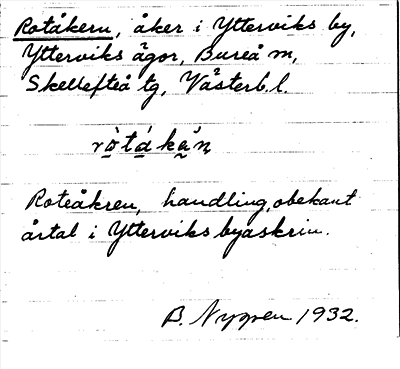 Rotåkern, åker i Ytterviks by,
Ytterviks ägor, Bureå m,
Skellefteå tg, Västerb.l.
Roteåkren, handling, obekant
årtal i Ytterviks byaskrin.
B. Nygren 1932.